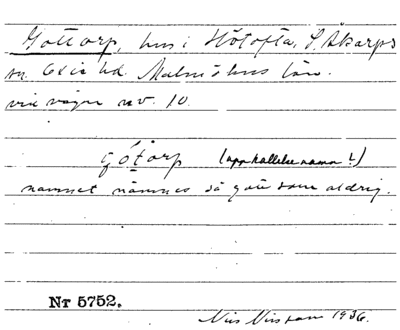 Gottorp, hus i Hötofta, S. Åkarps
sn. Oxie hd. Malmöhus län.
vid vägen nr. 10.
gótorp (appellativnamn?)
namnet nämnes så gott som aldrig.
Nr 5752.
Nils Nilsson 1936.